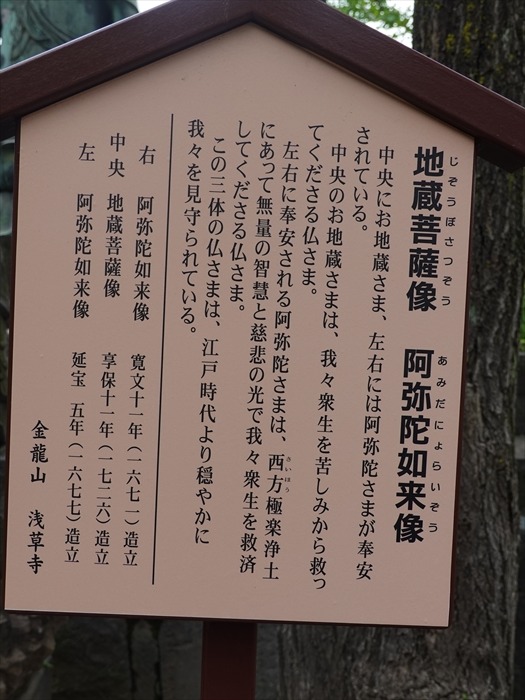 地蔵菩薩像　阿弥陀如来像
じぞうぼさつぞう　あみだにょらいぞう
中央にお地蔵さま、左右には阿弥陀さまが奉安
されている。
中央のお地蔵さまは、我々衆生を苦しみから救っ
てくださる仏さま。
左右に奉安される阿弥陀さまは、西方極楽浄土
さいほう
にあって無量の智慧と慈悲の光で我々衆生を救済
してくださる仏さま。
この三体の仏さまは、江戸時代より穏やかに
我々を見守られている。
右　阿弥陀如来像　寛文十一年（一六七一）造立
中央　地蔵菩薩像　享保十一年（一七二六）造立
左　阿弥陀如来像　延宝　五年（一六七七）造立
金龍山　浅草寺